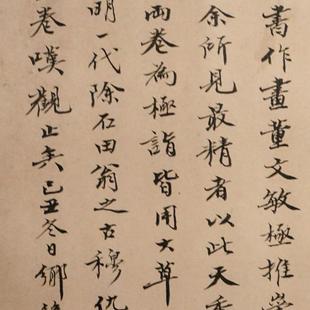 書作畫董文敏極推崇
余所見最精者以此天香
兩卷為極詣皆用大草
明一代除石田翁之古穆仇
卷嘆觀止矣己丑冬日鄉